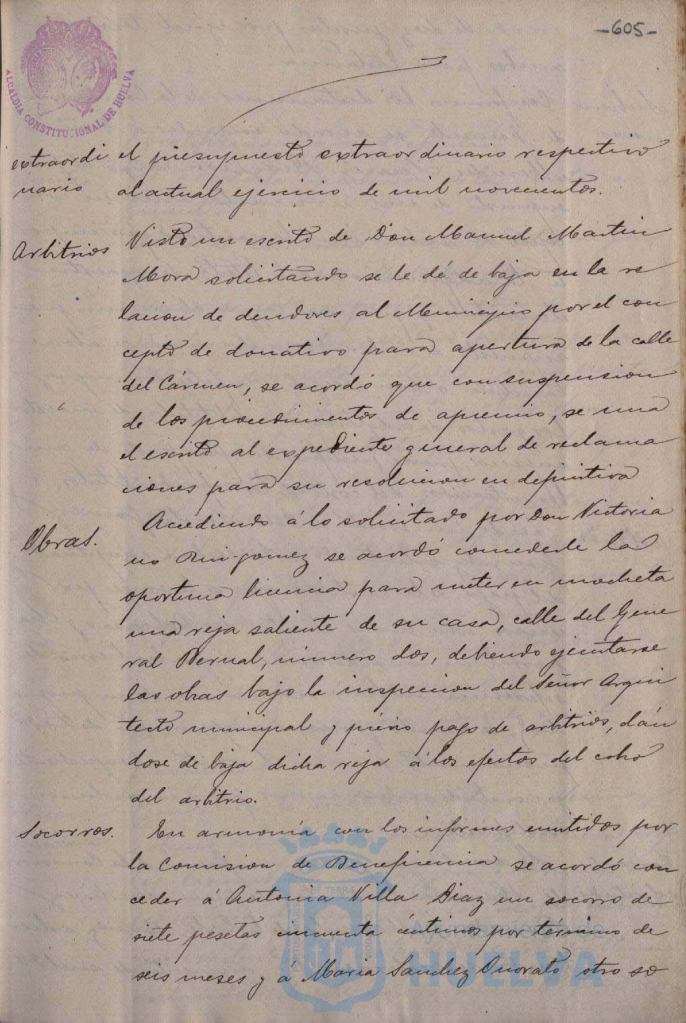 -605-
ALCALDIA CONSTITUCIONAL DE HUELVA
extraordi el presupuesto extraordinario respectivo
nario al actual ejercicio de mil novecientos.
Arbitrios Visto un escrito de Don Manuel Martin
Mora solicitando se le dé de baja en la re
lacion de deudores al Municipio por el con
cepto de donativo para apertura de la calle
del Cármen, se acordó que con suspension
de los procedimientos de apremio, se una
el escrito al expediente general de reclama
ciones para su resolucion en definitiva
Obras. Accediendo á lo solicitado por Don Victoria
no Ruigomez se acordó concederle la
oportuna licencia para meter en mocheta
una reja saliente de su casa, calle del Gene
ral Bernal, número dos, debiendo ejecutarse
las obras bajo la inspeccion del Señor Arqui
tecto municipal y prévio pago de arbitrios, dán
dose de baja dicha reja á los efectos del cobro
del arbitrio.
Socorros. En armonía con los informes emitidos por
la Comision de Beneficencia se acordó con
ceder á Antonia Villa Diaz un socorro de
siete pesetas cincuenta céntimos por término de
seis meses y á Maria Sanchez otro so
HUELVA